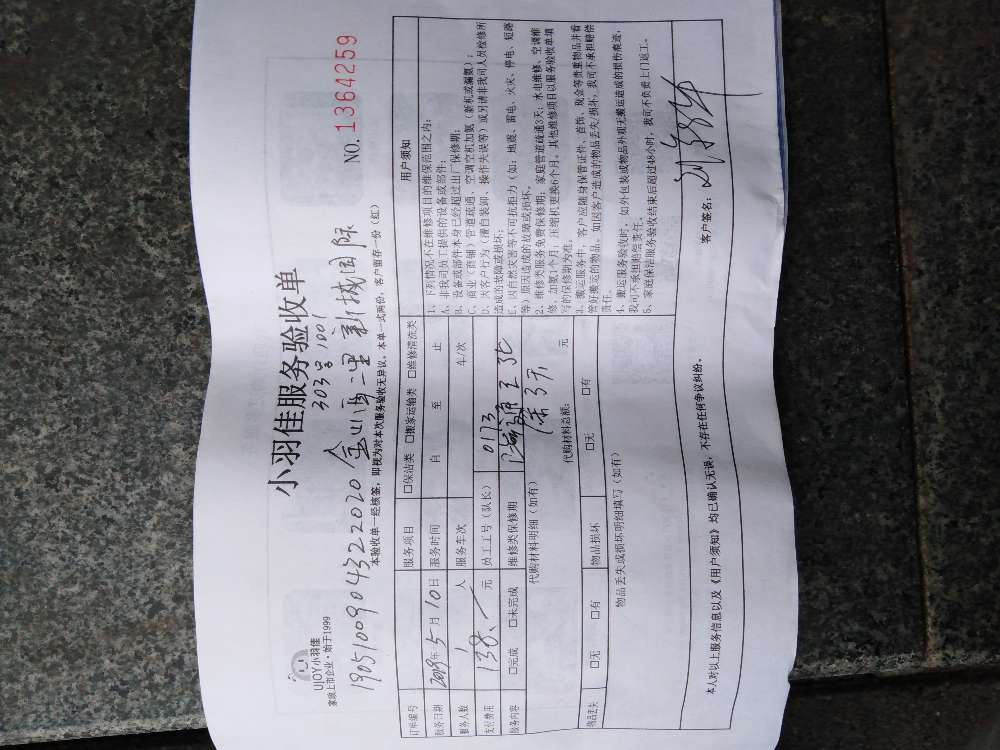 UJOY小羽佳
家政上市企业·始于1999
小羽佳服务验收单
NO.1364259
303号1001
1905100904322020 金山西二里 新城国际
本验收单一经核签，即视为对本次服务验收无异议。本单一式两份，客户留存一份（红）
订单编号
服务项目 □保洁类 □搬家运输类 □维修清洗类
服务日期 2019年5月10日 服务时间 自 至 止
服务人数 1 人 服务车次 车/次
支付费用 138.- 元 员工工号（队长） 0173
服务内容 □完成 □未完成 维修类保修期
保3天
代购材料明细（如有） 代购材料总额： 元
物品丢失 □无 □有 物品损坏 □无 □有
物品丢失或损坏明细填写（如有）
用户须知
1、下列情况不在维修项目的维保范围之内：
A、非我司员工提供的设备或部件；
B、设备或部件本身已经超过出厂保修期；
C、商业（商铺）管道疏通、空调空机加氨（新机或漏氨）；
D、因客户行为（擅自装卸、操作失误等）或另请非我司人员检修所
造成的故障或损坏；
E、因自然灾害等不可抗拒力（如：地震、雷电、火灾、停电、短路
等）原因造成的故障或损坏。
2、维修类服务免费保修期：家庭管道疏通3天；水电维修、空调维
修、加氨1个月；压缩机更换6个月。其他维修项目以服务验收单填
写的保修期为准。
3、搬运服务中，客户应随身保管证件、首饰、现金等贵重物品并看
管好搬运的物品。如因客户造成的物品丢失/损坏，我司不承担赔偿
责任。
4、搬运服务验收时，如外包装或物品外观无搬运造成的损伤痕迹，
我司可不承担赔偿责任。
5、家庭保洁服务验收结束后超过48小时，我司不负责上门返工。
本人对以上服务信息以及《用户须知》均已确认无误，不存在任何争议纠纷。
客户签名：